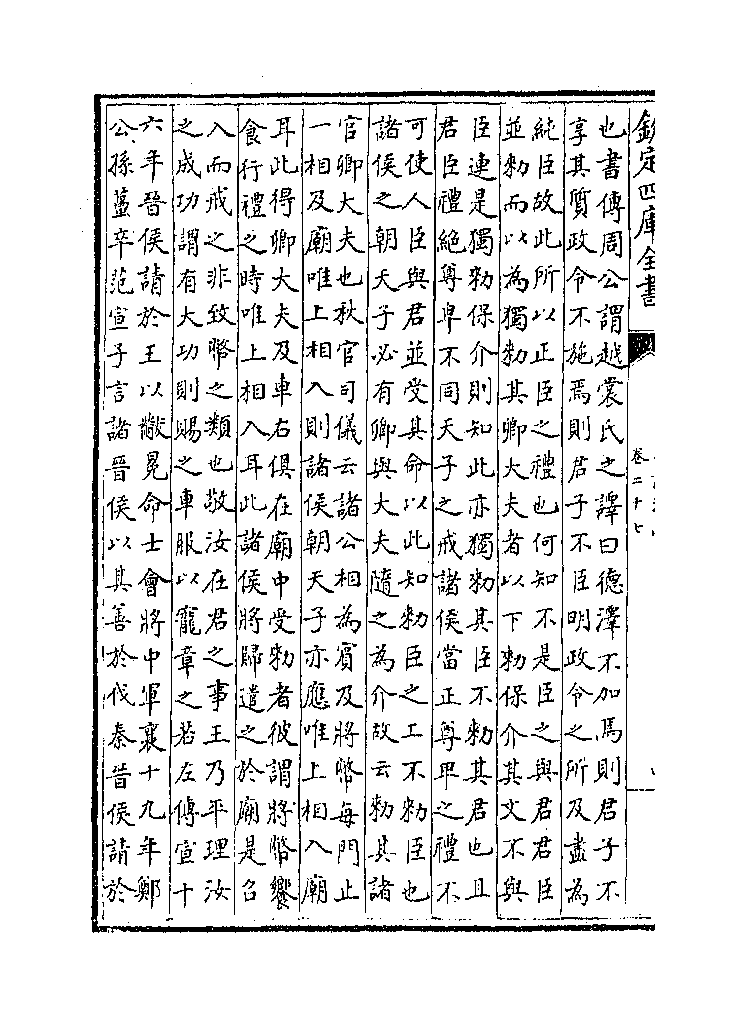 欽定四庫全書
卷二十七
也書傳周公謂越裳氏之譯曰德澤不加焉則君子不
享其質政令不施焉則君子不臣明政令之所及盡為
純臣故此所以正臣之禮也何知不是臣之與君君臣
並勑而以為獨勑其卿大夫者以下勑保介其文不與
臣連是獨勑保介則知此亦獨勑其臣不勑其君也且
君臣禮絕尊卑不同天子之戒諸侯當正尊卑之禮不
可使人臣與君並受其命以此知勑臣之工不勑臣也
諸侯之朝天子必有卿與大夫隨之為介故云勑其諸
官卿大夫也秋官司儀云諸公相為賓及將幣每門止
一相及廟唯上相入則諸侯朝天子亦應唯上相入廟
耳此得卿大夫及車右俱在廟中受勑者彼謂將幣饗
食行禮之時唯上相入耳此諸侯將歸遣之於廟是召
入而戒之非致幣之類也敬汝在君之事王乃平理汝
之成功謂有大功則賜之車服以寵章之若左傳宣十
六年晉侯請於王以黻冕命士會將中軍襄十九年鄭
公孫蠆卒范宣子言諸晉侯以其善於伐秦晉侯請於